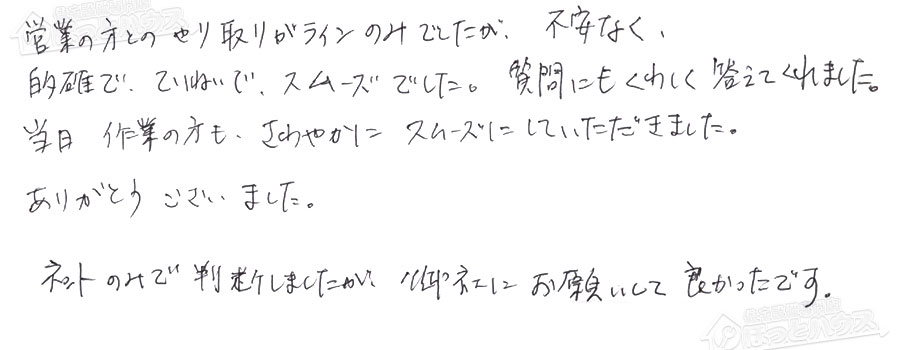 営業の方とのやり取りがラインのみでしたが、不安なく、
的確で、ていねいで、スムーズでした。質問にもくわしく答えてくれました。
当日 作業の方も、さわやかに スムーズにしていただきました。
ありがとうございました。
ネットのみで判断しましたが、御社にお願いして良かったです。
ほっとハウス